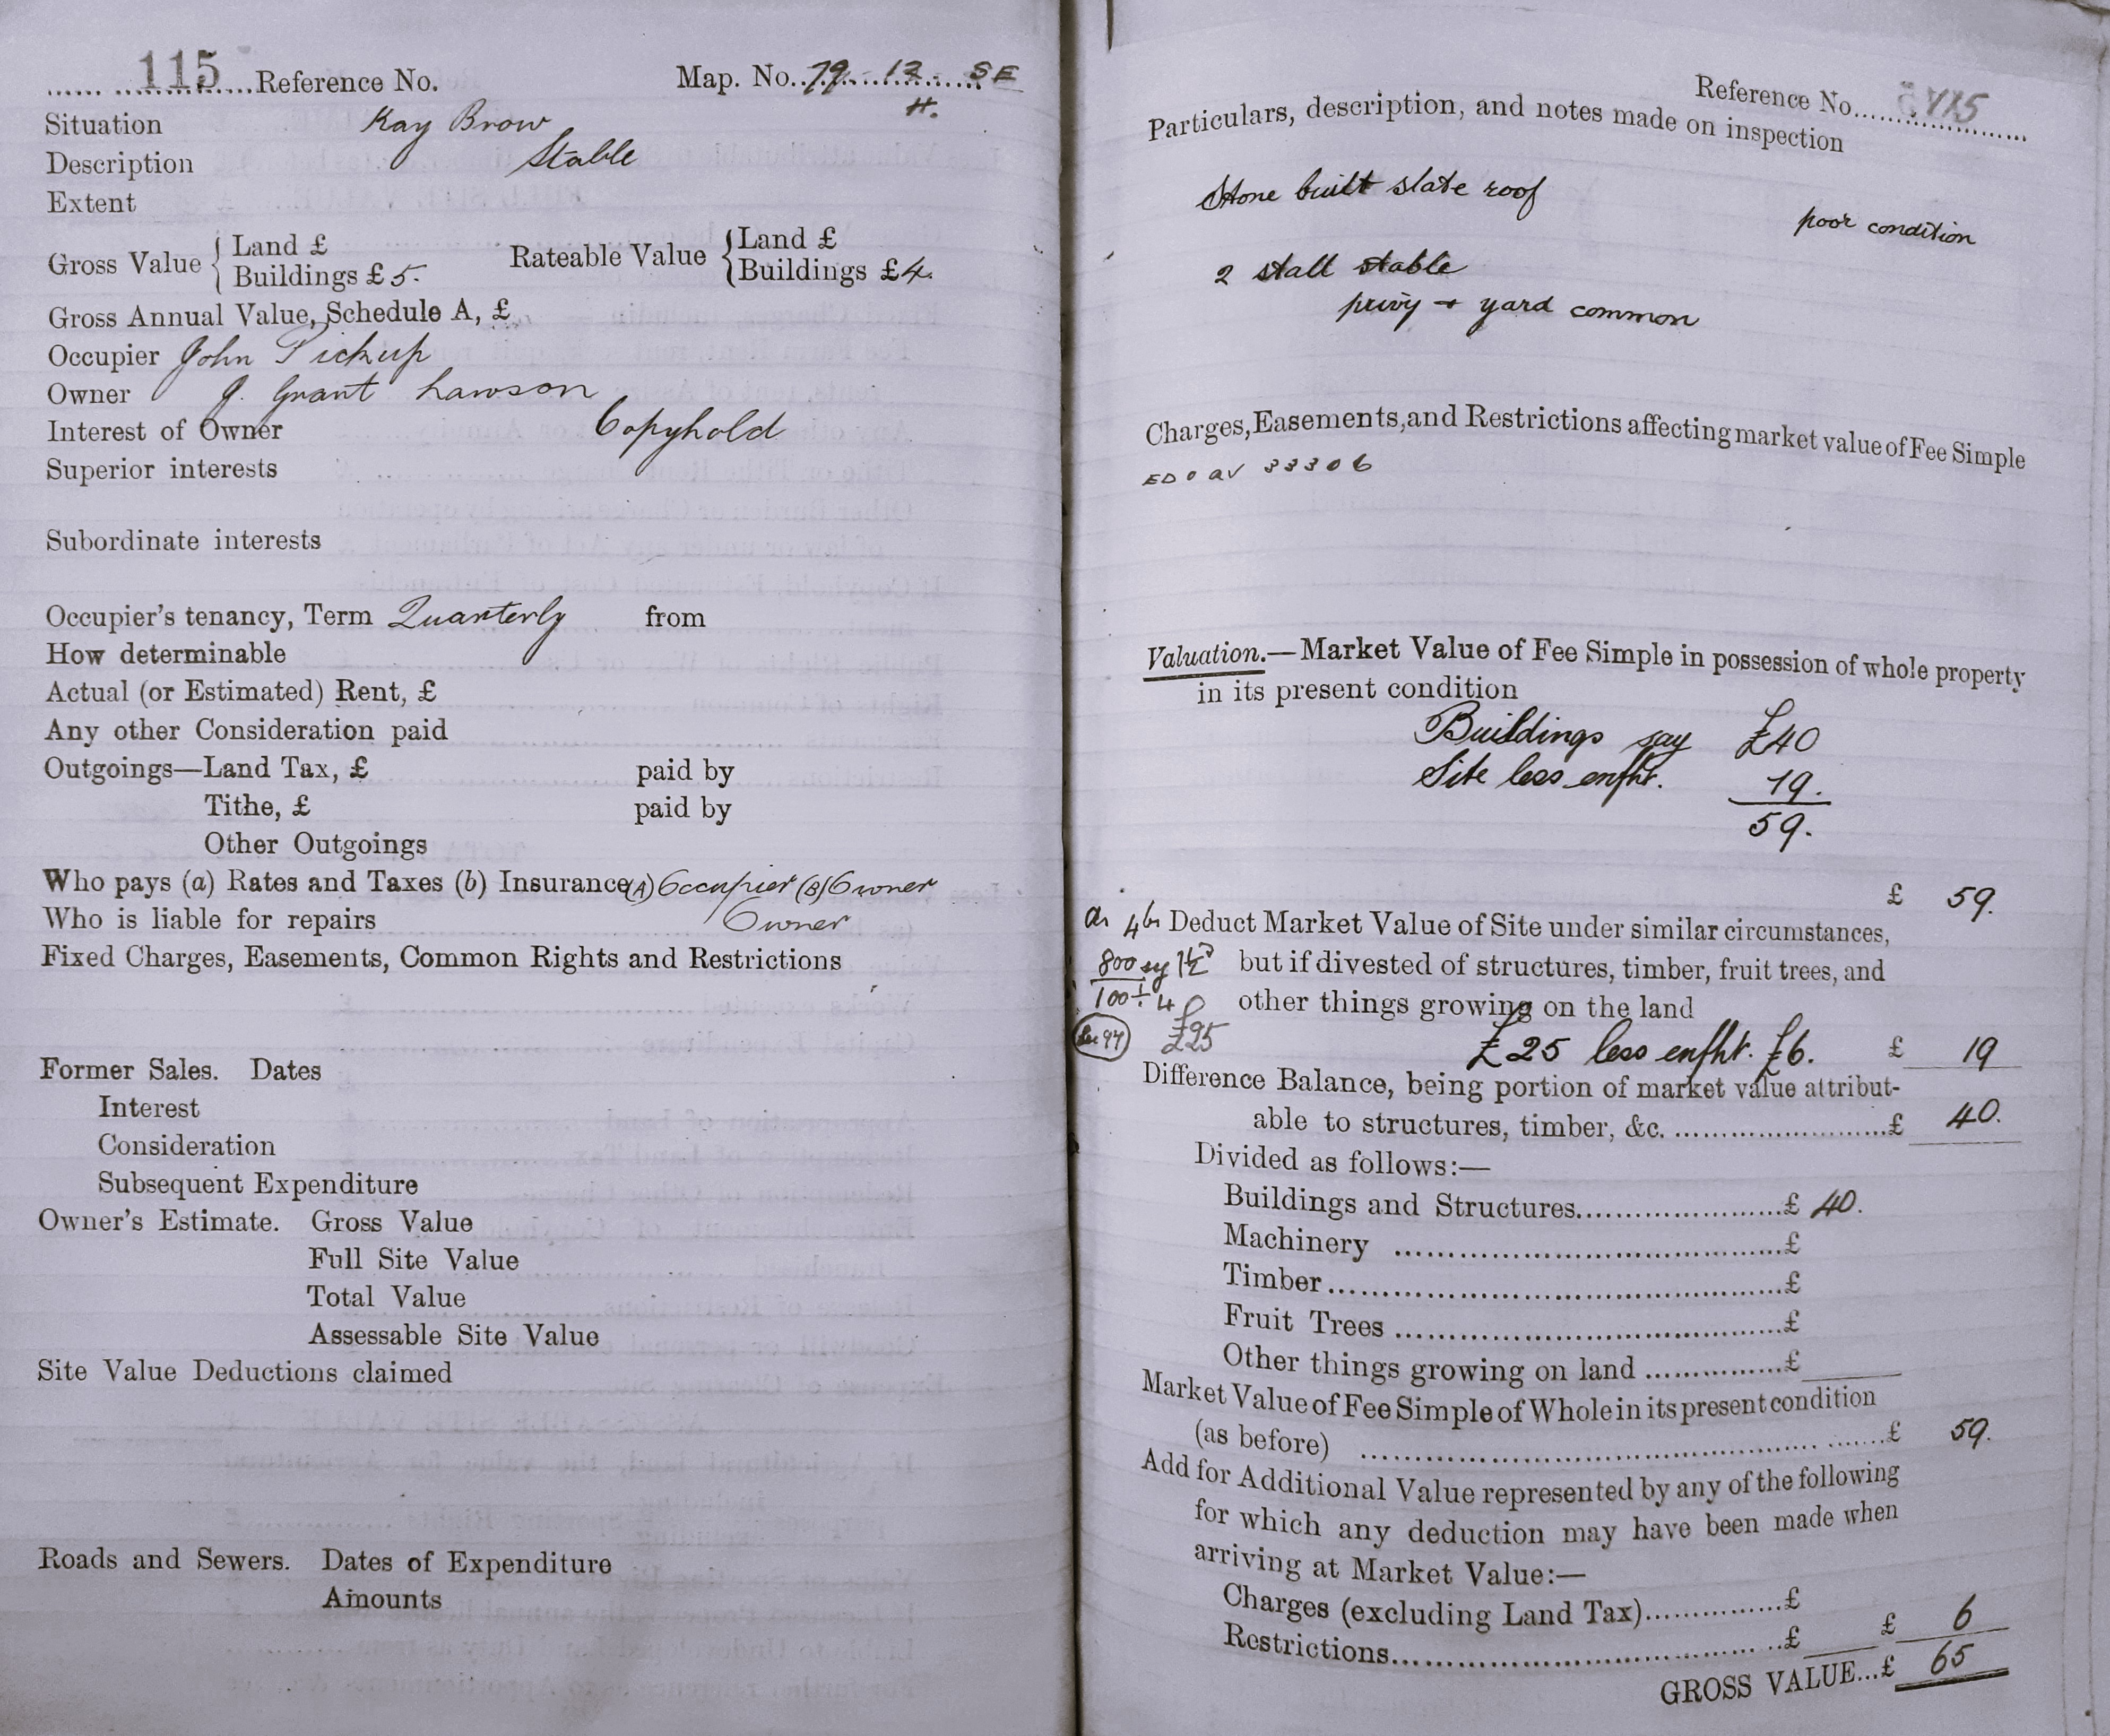 115 Reference No. Map. No. 79 12 SE
H.
Situation Kay Brow
Description Stable
Extent
Gross Value { Land £ Rateable Value { Land £
Buildings £ 5. Buildings £ 4.
Gross Annual Value, Schedule A, £
Occupier John Pickup
Owner J. Grant Lawson
Interest of Owner Copyhold
Superior interests
Subordinate interests
Occupier's tenancy, Term Quarterly from
How determinable
Actual (or Estimated) Rent, £
Any other Consideration paid
Outgoings—Land Tax, £ paid by
Tithe, £ paid by
Other Outgoings
Who pays (a) Rates and Taxes (b) Insurance (A) Occupier (B) Owner
Who is liable for repairs Owner
Fixed Charges, Easements, Common Rights and Restrictions
Former Sales. Dates
Interest
Consideration
Subsequent Expenditure
Owner's Estimate. Gross Value
Full Site Value
Total Value
Assessable Site Value
Site Value Deductions claimed
Roads and Sewers. Dates of Expenditure
Amounts
Reference No. 115
Particulars, description, and notes made on inspection
Stone built slate roof
poor condition
2 stall stable
privy + yard common
Charges, Easements, and Restrictions affecting market value of Fee Simple
33306
Valuation.—Market Value of Fee Simple in possession of whole property
in its present condition
Buildings say £40
Site less enfht. 19.
59.
£ 59.
Deduct Market Value of Site under similar circumstances,
800 sy but if divested of structures, timber, fruit trees, and
100 ÷ 4 other things growing on the land
£25 £25 less enfht. £6. £ 19
Difference Balance, being portion of market value attribut-
able to structures, timber, &c. ........................£ 40.
Divided as follows:—
Buildings and Structures.......................£ 40.
Machinery ............................................£
Timber....................................................£
Fruit Trees ............................................£
Other things growing on land ...............£
Market Value of Fee Simple of Whole in its present condition
(as before) ............................................................£ 59.
Add for Additional Value represented by any of the following
for which any deduction may have been made when
arriving at Market Value:—
Charges (excluding Land Tax)...............£
Restrictions..........................................£ £ 6
GROSS VALUE...£ 65